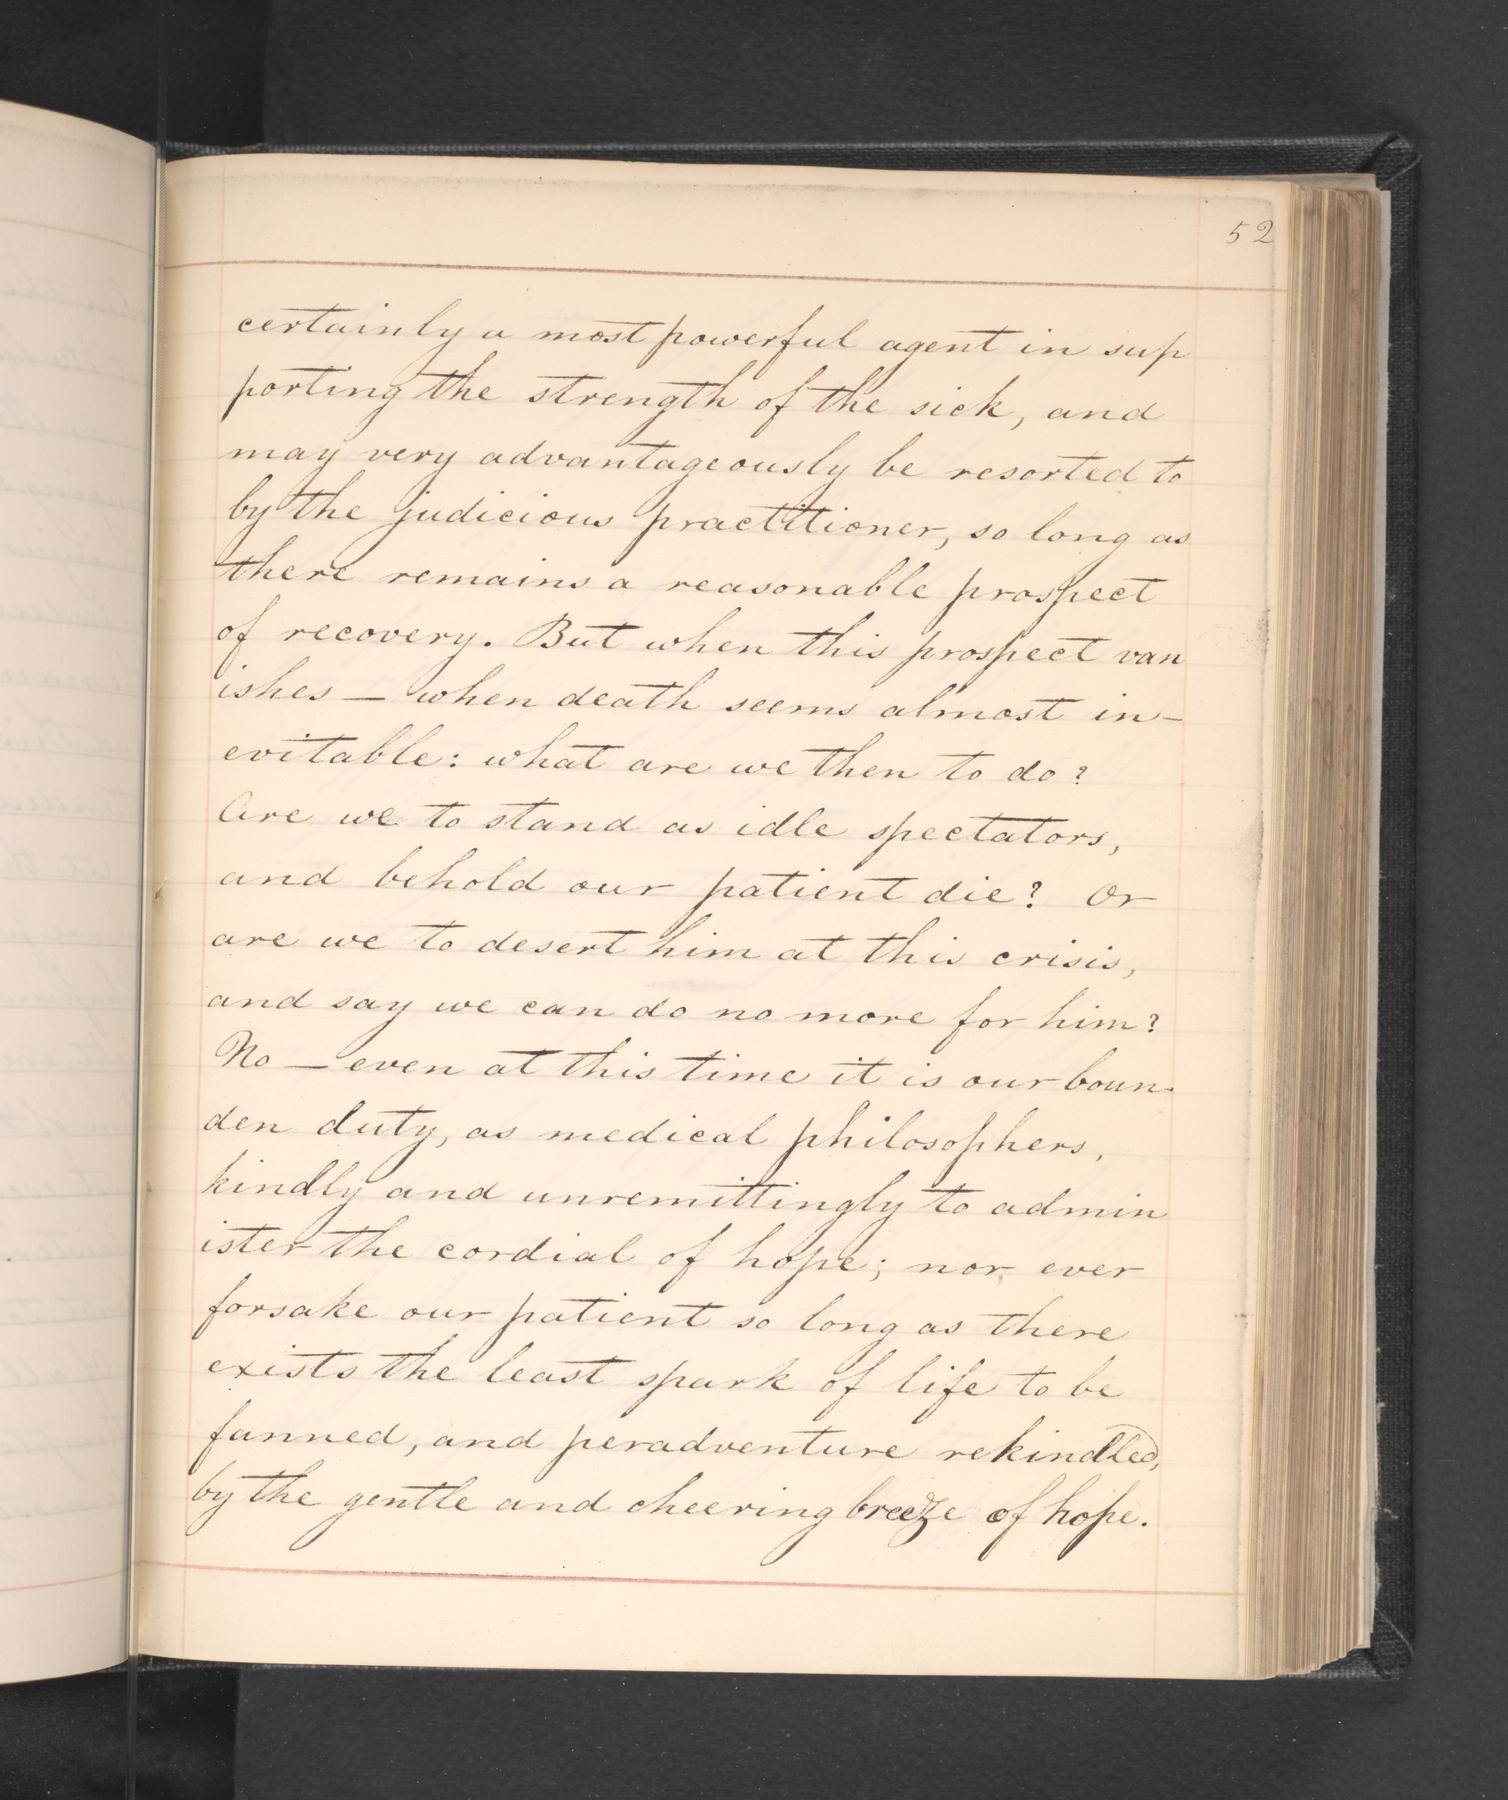 52
certainly a most powerful agent in sup
porting the strength of the sick, and
may very advantageously be resorted to
by the judicious practitioner, so long as
there remains a reasonable prospect
of recovery. But when this prospect van
ishes — when death seems almost in-
evitable: what are we then to do?
Are we to stand as idle spectators,
and behold our patient die? Or
are we to desert him at this crisis,
and say we can do no more for him?
No — even at this time it is our boun-
den duty, as medical philosophers,
kindly and unremittingly to admin
ister the cordial of hope; nor ever
forsake our patient so long as there
exists the least spark of life to be
fanned, and peradventure rekindled,
by the gentle and cheering breeze of hope.